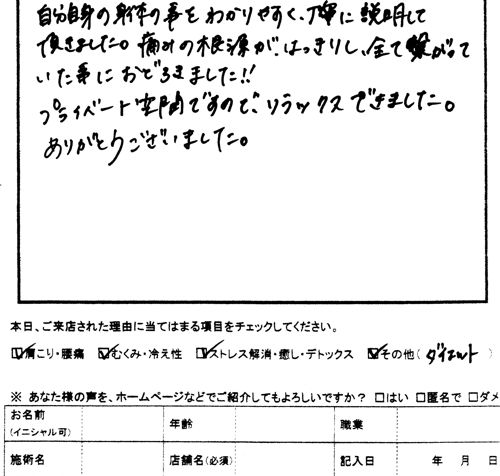 自分自身の身体の事をわかりやすく、丁寧に説明して
頂きました。痛みの根源が、はっきりし、全て繋がって
いた事におどろきました!!
プライベート空間ですので、リラックスできました。
ありがとうございました。
本日、ご来店された理由に当てはまる項目をチェックしてください。
☑肩こり・腰痛 ☑むくみ・冷え性 ☑ストレス解消・癒し・デトックス ☑その他(ダイエット)
※ あなた様の声を、ホームページなどでご紹介してもよろしいですか? □はい □匿名で □ダメ
お名前 年齢 職業
(イニシャル可)
施術名 店舗名(必須) 記入日 年 月 日